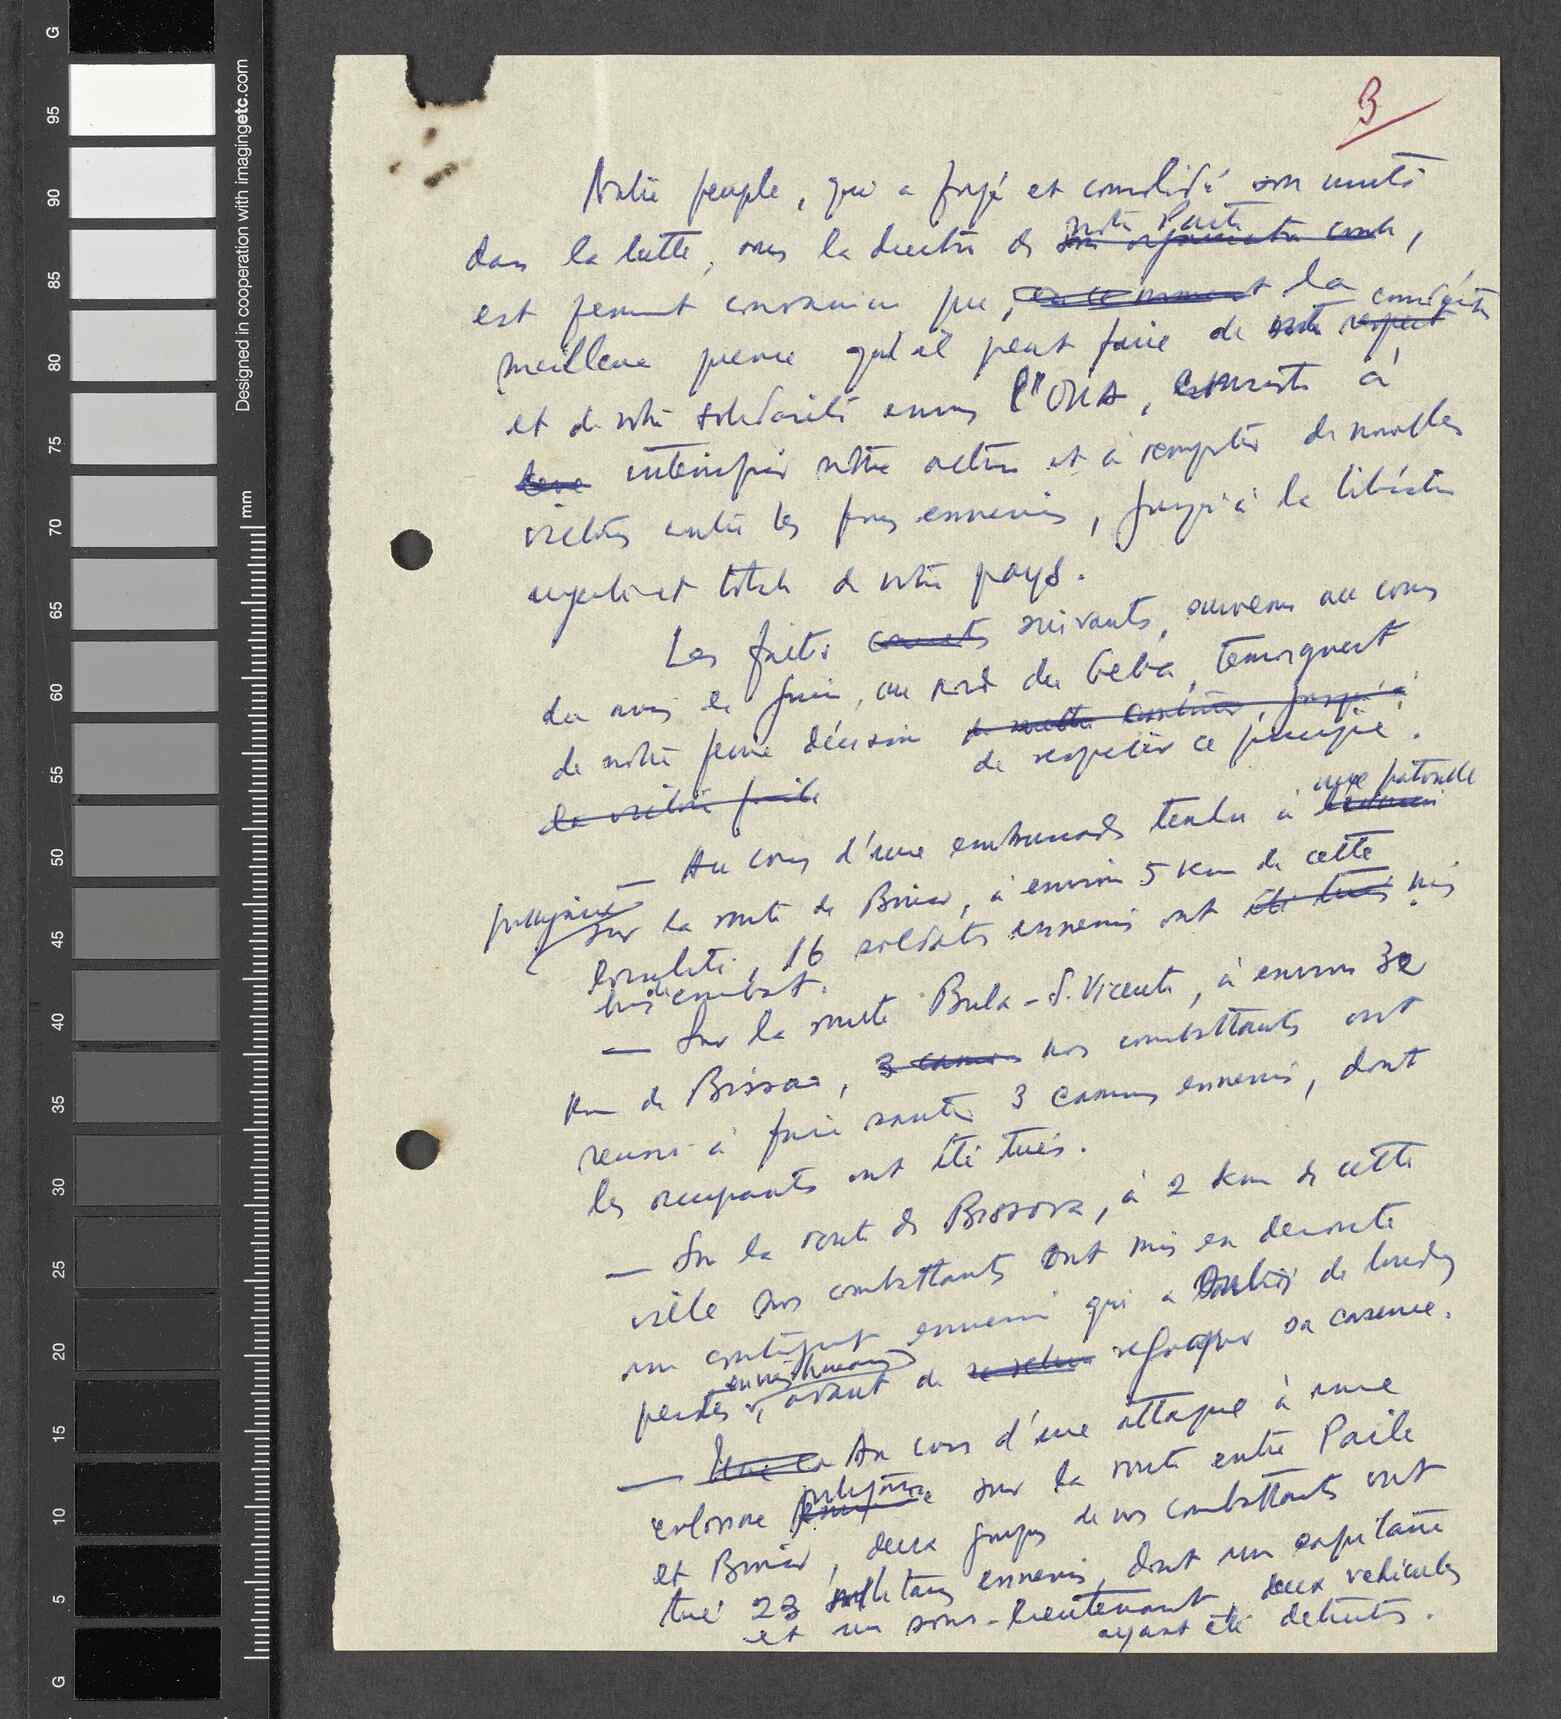 3
Notre peuple, qui a forgé et consolidé son unité
dans la lutte, sous la direction de notre Parti,
est fermement convaincu que, en ce moment la
meilleure preuve qu'il peut faire de respect considération
et de notre solidarité envers l'OUA, consiste à
intensifier notre action et à remporter de nouvelles
victoires contre les forces ennemies, jusqu'à la libération
totale de notre pays.
Les faits concrets suivants, survenus au cours
du mois de Juin, au nord du Geba, témoignent
de notre ferme décision de
de respecter ce principe.
la victoire finale
Au cours d'une embuscade tendue à une patrouille
portugaise sur la route de Binar, à environ 5 km de cette
localité, 16 soldats ennemis ont été tués mis
hors de combat.
— Sur la route Bula-S. Vicente, à environ 32
km de Bissau, 3 camions nos combattants ont
réussi à faire sauter 3 camions ennemis, dont
les occupants ont été tués.
— Sur la route de Bissora, à 2 km de cette
ville nos combattants ont mis en déroute
un contingent ennemi qui a subi de lourdes
pertes en vies humaines, avant de regagner sa caserne.
— Au cours d'une attaque à une
colonne portugaise sur la route entre Paile
et Binar, deux groupes de nos combattants ont
tué 23 militaires ennemis, dont un capitaine
et un sous-lieutenant, deux véhicules
ayant été détruits.
G
95
90
85
80
75
70
65
60
55
50
45
40
35
30
25
20
15
10
5
G
mm
Designed in cooperation with imagingetc.com